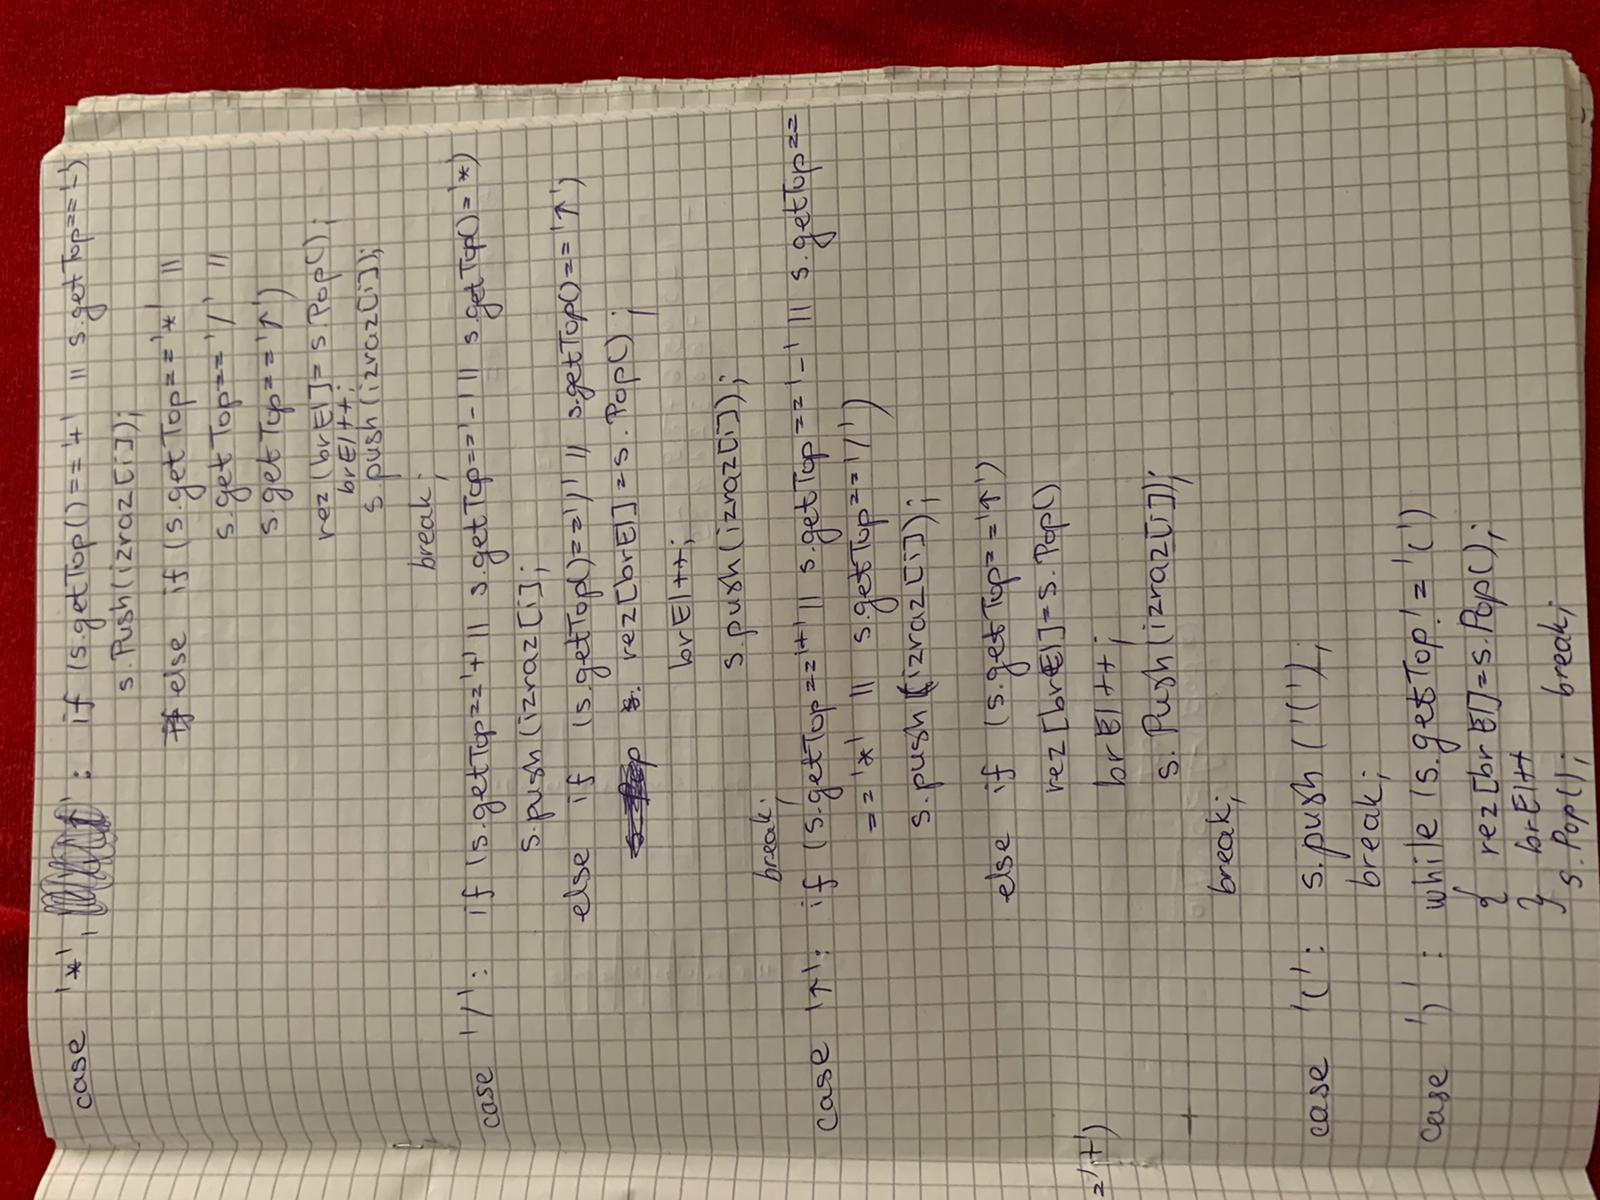 case '*', : if (s.getTop()=='+' || s.getTop=='-')
s.Push(izraz[i]);
else if (s.getTop=='*' ||
s.getTop=='/' ||
s.getTop=='↑')
rez(brEl]=s.Pop();
brEl++;
s.push(izraz[i]);
break;
case '/': if (s.getTop=='+' || s.getTop=='-' || s.getTop()='*')
s.push(izraz[i];
else if (s.getTop()=='/' || s.getTop()=='↑')
rez[brEl]=s.Pop();
brEl++;
s.push(izraz[i]);
break;
case '↑': if (s.getTop=='+' || s.getTop=='-' || s.getTop==
=='*' || s.getTop=='/')
s.push(izraz[i]);
else if (s.getTop=='↑')
rez[brEl]=s.Pop()
='+')
brEl++;
s.Push(izraz[i]);
break;
case '(': s.push('(');
break;
case ')': while (s.getTop!='(')
{ rez[brEl]=s.Pop();
} brEl++
s.Pop(); break;